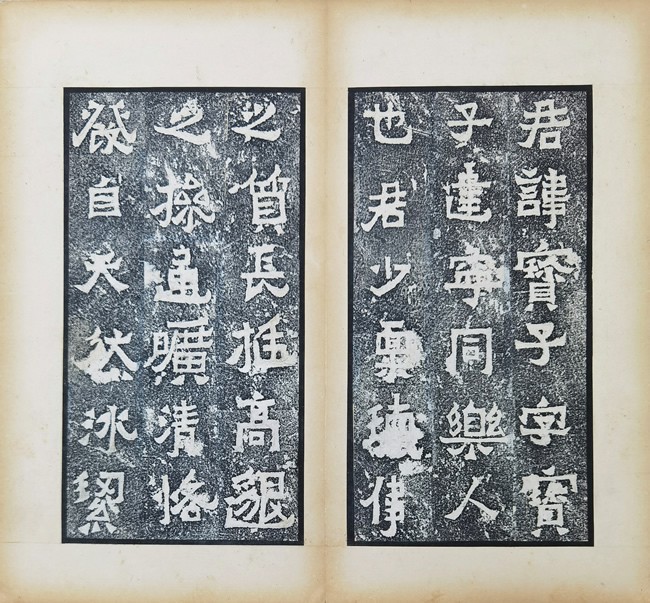 君諱寶子字寶
子建寧同樂人
也君少稟瓌偉
之質長挺高邈
之操通曠清恪
發自天然冰潔